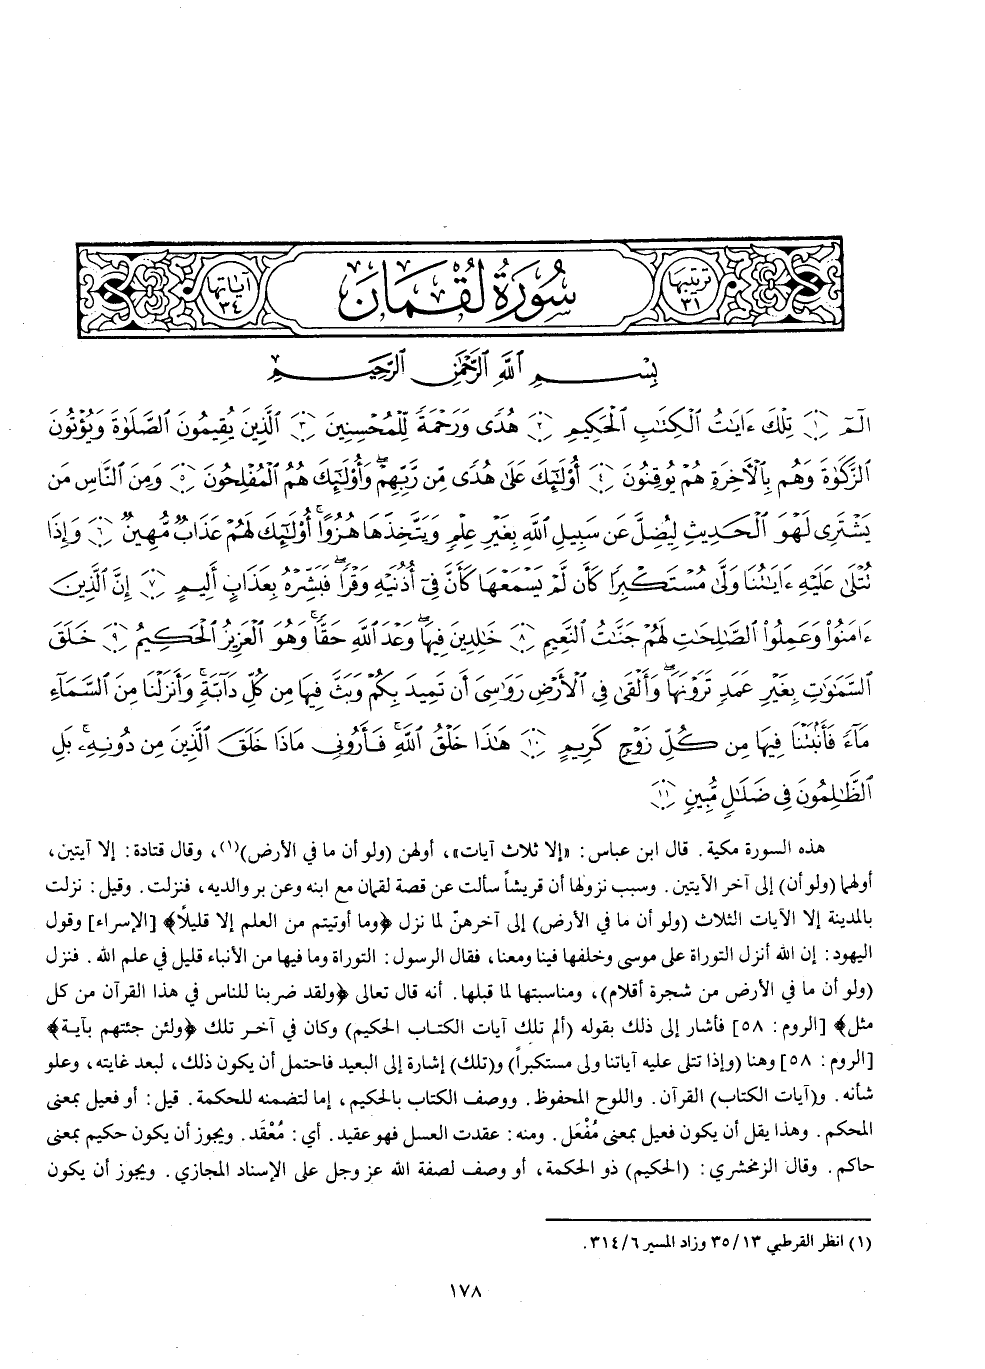 ترتيبها ٣١ سُورَةُ لُقْمَان آياتها ٣٤
بِسْمِ ٱللَّهِ ٱلرَّحْمَٰنِ ٱلرَّحِيمِ
الٓمٓ ﴿١﴾ تِلْكَ ءَايَٰتُ ٱلْكِتَٰبِ ٱلْحَكِيمِ ﴿٢﴾ هُدًى وَرَحْمَةً لِّلْمُحْسِنِينَ ﴿٣﴾ ٱلَّذِينَ يُقِيمُونَ ٱلصَّلَوٰةَ وَيُؤْتُونَ
ٱلزَّكَوٰةَ وَهُم بِٱلْآخِرَةِ هُمْ يُوقِنُونَ ﴿٤﴾ أُوْلَٰٓئِكَ عَلَىٰ هُدًى مِّن رَّبِّهِمْ ۖ وَأُوْلَٰٓئِكَ هُمُ ٱلْمُفْلِحُونَ ﴿٥﴾ وَمِنَ ٱلنَّاسِ مَن
يَشْتَرِى لَهْوَ ٱلْحَدِيثِ لِيُضِلَّ عَن سَبِيلِ ٱللَّهِ بِغَيْرِ عِلْمٍ وَيَتَّخِذَهَا هُزُوًا ۚ أُوْلَٰٓئِكَ لَهُمْ عَذَابٌ مُّهِينٌ ﴿٦﴾ وَإِذَا
تُتْلَىٰ عَلَيْهِ ءَايَٰتُنَا وَلَّىٰ مُسْتَكْبِرًا كَأَن لَّمْ يَسْمَعْهَا كَأَنَّ فِىٓ أُذُنَيْهِ وَقْرًا ۖ فَبَشِّرْهُ بِعَذَابٍ أَلِيمٍ ﴿٧﴾ إِنَّ ٱلَّذِينَ
ءَامَنُوا۟ وَعَمِلُوا۟ ٱلصَّٰلِحَٰتِ لَهُمْ جَنَّٰتُ ٱلنَّعِيمِ ﴿٨﴾ خَٰلِدِينَ فِيهَا ۖ وَعْدَ ٱللَّهِ حَقًّا ۚ وَهُوَ ٱلْعَزِيزُ ٱلْحَكِيمُ ﴿٩﴾ خَلَقَ
ٱلسَّمَٰوَٰتِ بِغَيْرِ عَمَدٍ تَرَوْنَهَا ۖ وَأَلْقَىٰ فِى ٱلْأَرْضِ رَوَٰسِىَ أَن تَمِيدَ بِكُمْ وَبَثَّ فِيهَا مِن كُلِّ دَآبَّةٍ ۚ وَأَنزَلْنَا مِنَ ٱلسَّمَآءِ
مَآءً فَأَنۢبَتْنَا فِيهَا مِن كُلِّ زَوْجٍ كَرِيمٍ ﴿١٠﴾ هَٰذَا خَلْقُ ٱللَّهِ فَأَرُونِى مَاذَا خَلَقَ ٱلَّذِينَ مِن دُونِهِۦ ۚ بَلِ
ٱلظَّٰلِمُونَ فِى ضَلَٰلٍ مُّبِينٍ ﴿١١﴾
هذه السورة مكية. قال ابن عباس: «إلا ثلاث آيات»، أولهن (ولو أن ما في الأرض)(١)، وقال قتادة: إلا آيتين،
أولهما (ولو أن) إلى آخر الآيتين. وسبب نزولها أن قريشاً سألت عن قصة لقمان مع ابنه وعن بر والديه، فنزلت. وقيل: نزلت
بالمدينة إلا الآيات الثلاث (ولو أن ما في الأرض) إلى آخرهنّ لما نزل ﴿وما أوتيتم من العلم إلا قليلاً﴾ [الإسراء] وقول
اليهود: إن الله أنزل التوراة على موسى وخلفها فينا ومعنا، فقال الرسول: التوراة وما فيها من الأنباء قليل في علم الله. فنزل
(ولو أن ما في الأرض من شجرة أقلام)، ومناسبتها لما قبلها. أنه قال تعالى ﴿ولقد ضربنا للناس في هذا القرآن من كل
مثل﴾ [الروم: ٥٨] فأشار إلى ذلك بقوله (ألم تلك آيات الكتاب الحكيم) وكان في آخر تلك ﴿ولئن جئتهم بآية﴾
[الروم: ٥٨] وهنا (وإذا تتلى عليه آياتنا ولى مستكبراً) و(تلك) إشارة إلى البعيد فاحتمل أن يكون ذلك، لبعد غايته، وعلو
شأنه. و(آيات الكتاب) القرآن. واللوح المحفوظ. ووصف الكتاب بالحكيم، إما لتضمنه للحكمة. قيل: أو فعيل بمعنى
المحكم. وهذا يقل أن يكون فعيل بمعنى مُفْعَل. ومنه: عقدت العسل فهو عقيد. أي: مُعْقَد. ويجوز أن يكون حكيم بمعنى
حاكم. وقال الزمخشري: (الحكيم) ذو الحكمة، أو وصف لصفة الله عز وجل على الإسناد المجازي. ويجوز أن يكون
(١) انظر القرطبي ٣٥/١٣ وزاد المسير ٣١٤/٦.
١٧٨